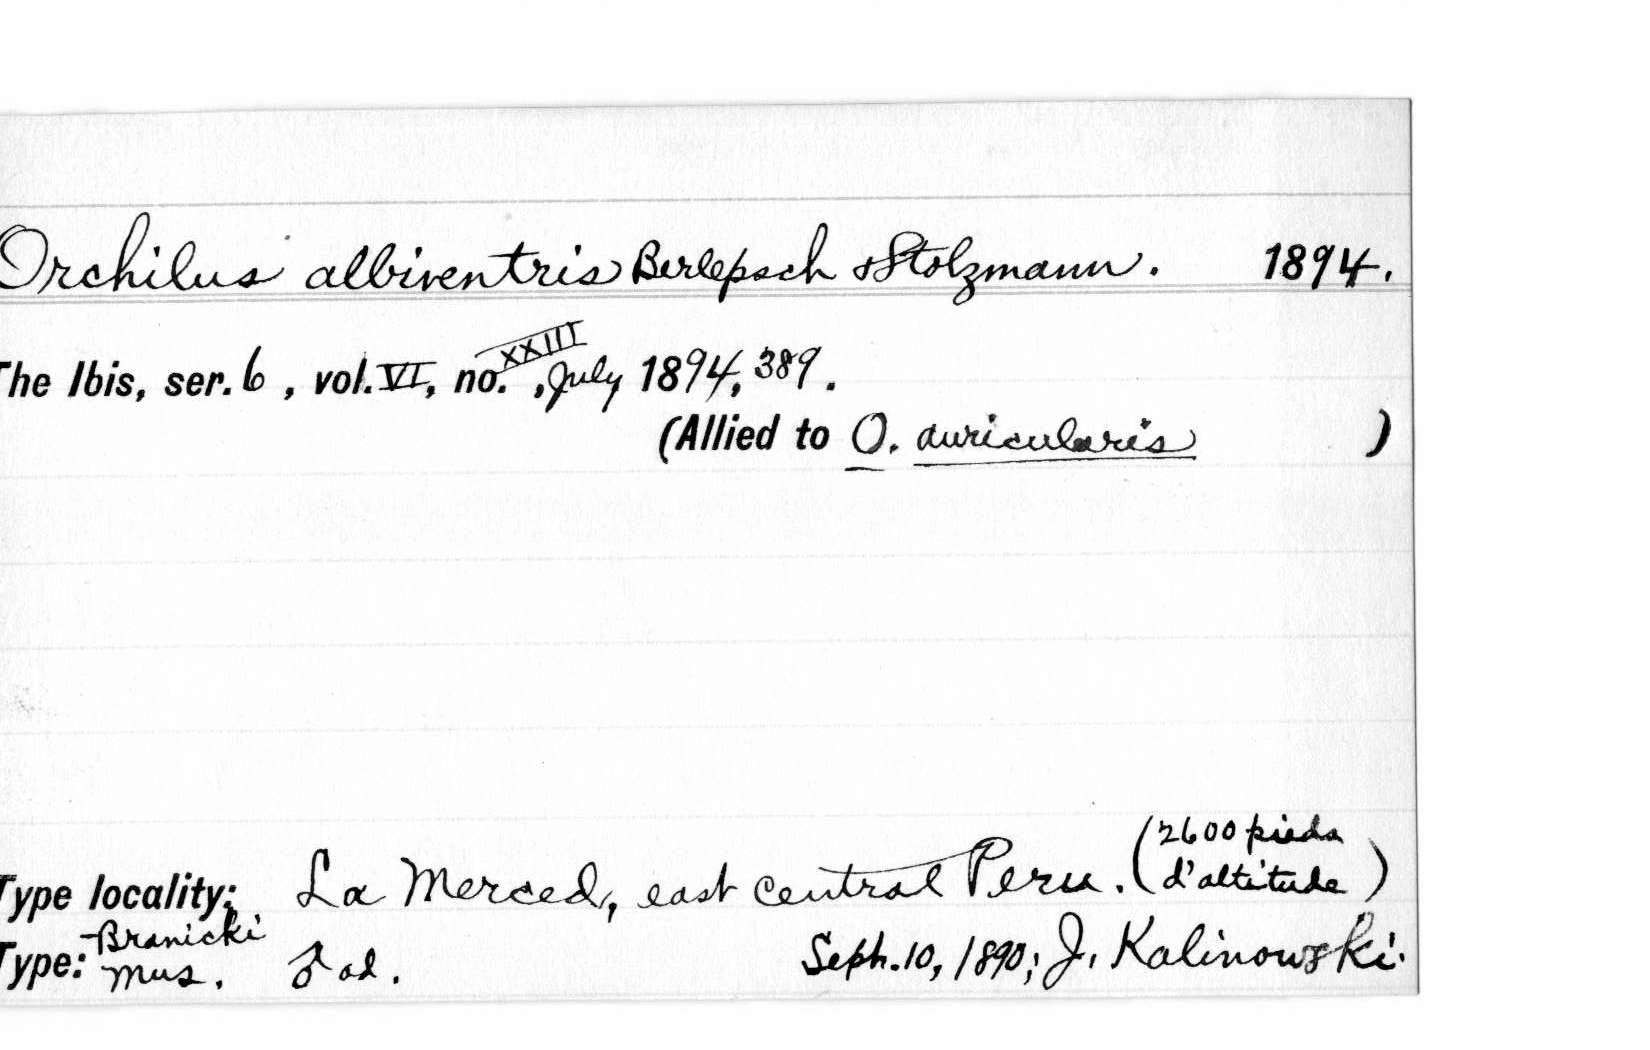 Orchilus albiventris Berlepsch & Stolzmann. 1894.
The Ibis, ser. 6, vol. VI, no. XXIII, July 1894, 389.
(Allied to O. auricularis )
Type locality: La Merced, east central Peru. (2600 pieds d'altitude)
Type: Branicki Mus. ♂ ad. Sept. 10, 1890; J. Kalinowski.